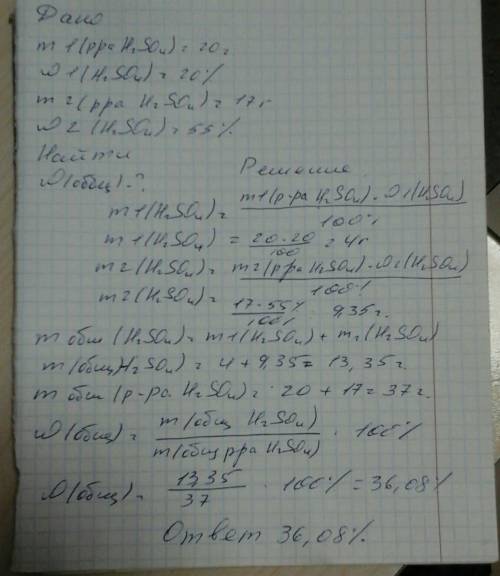 Дано
m1(рра H₂SO₄) = 20г
ω1(H₂SO₄) = 20%
m2(рра H₂SO₄) = 17г
ω2(H₂SO₄) = 55%.
Найти
Решение
ω(общ)-?
m1(H₂SO₄) = m1(р-ра H₂SO₄)·ω1(H₂SO₄) / 100%
m1(H₂SO₄) = 20·20 / 100 = 4г
m2(H₂SO₄) = m2(рра H₂SO₄)·ω2(H₂SO₄) / 100%
m2(H₂SO₄) = 17·55% / 100% = 9,35г.
m общ (H₂SO₄) = m1(H₂SO₄) + m2(H₂SO₄)
m(общ H₂SO₄) = 4 + 9,35 = 13,35г.
m общ (р-ра H₂SO₄) = 20 + 17 = 37г.
ω(общ) = m(общ H₂SO₄) / m(общ рра H₂SO₄) · 100%
ω(общ) = 13,35 / 37 · 100% = 36,08%
Ответ 36,08%.